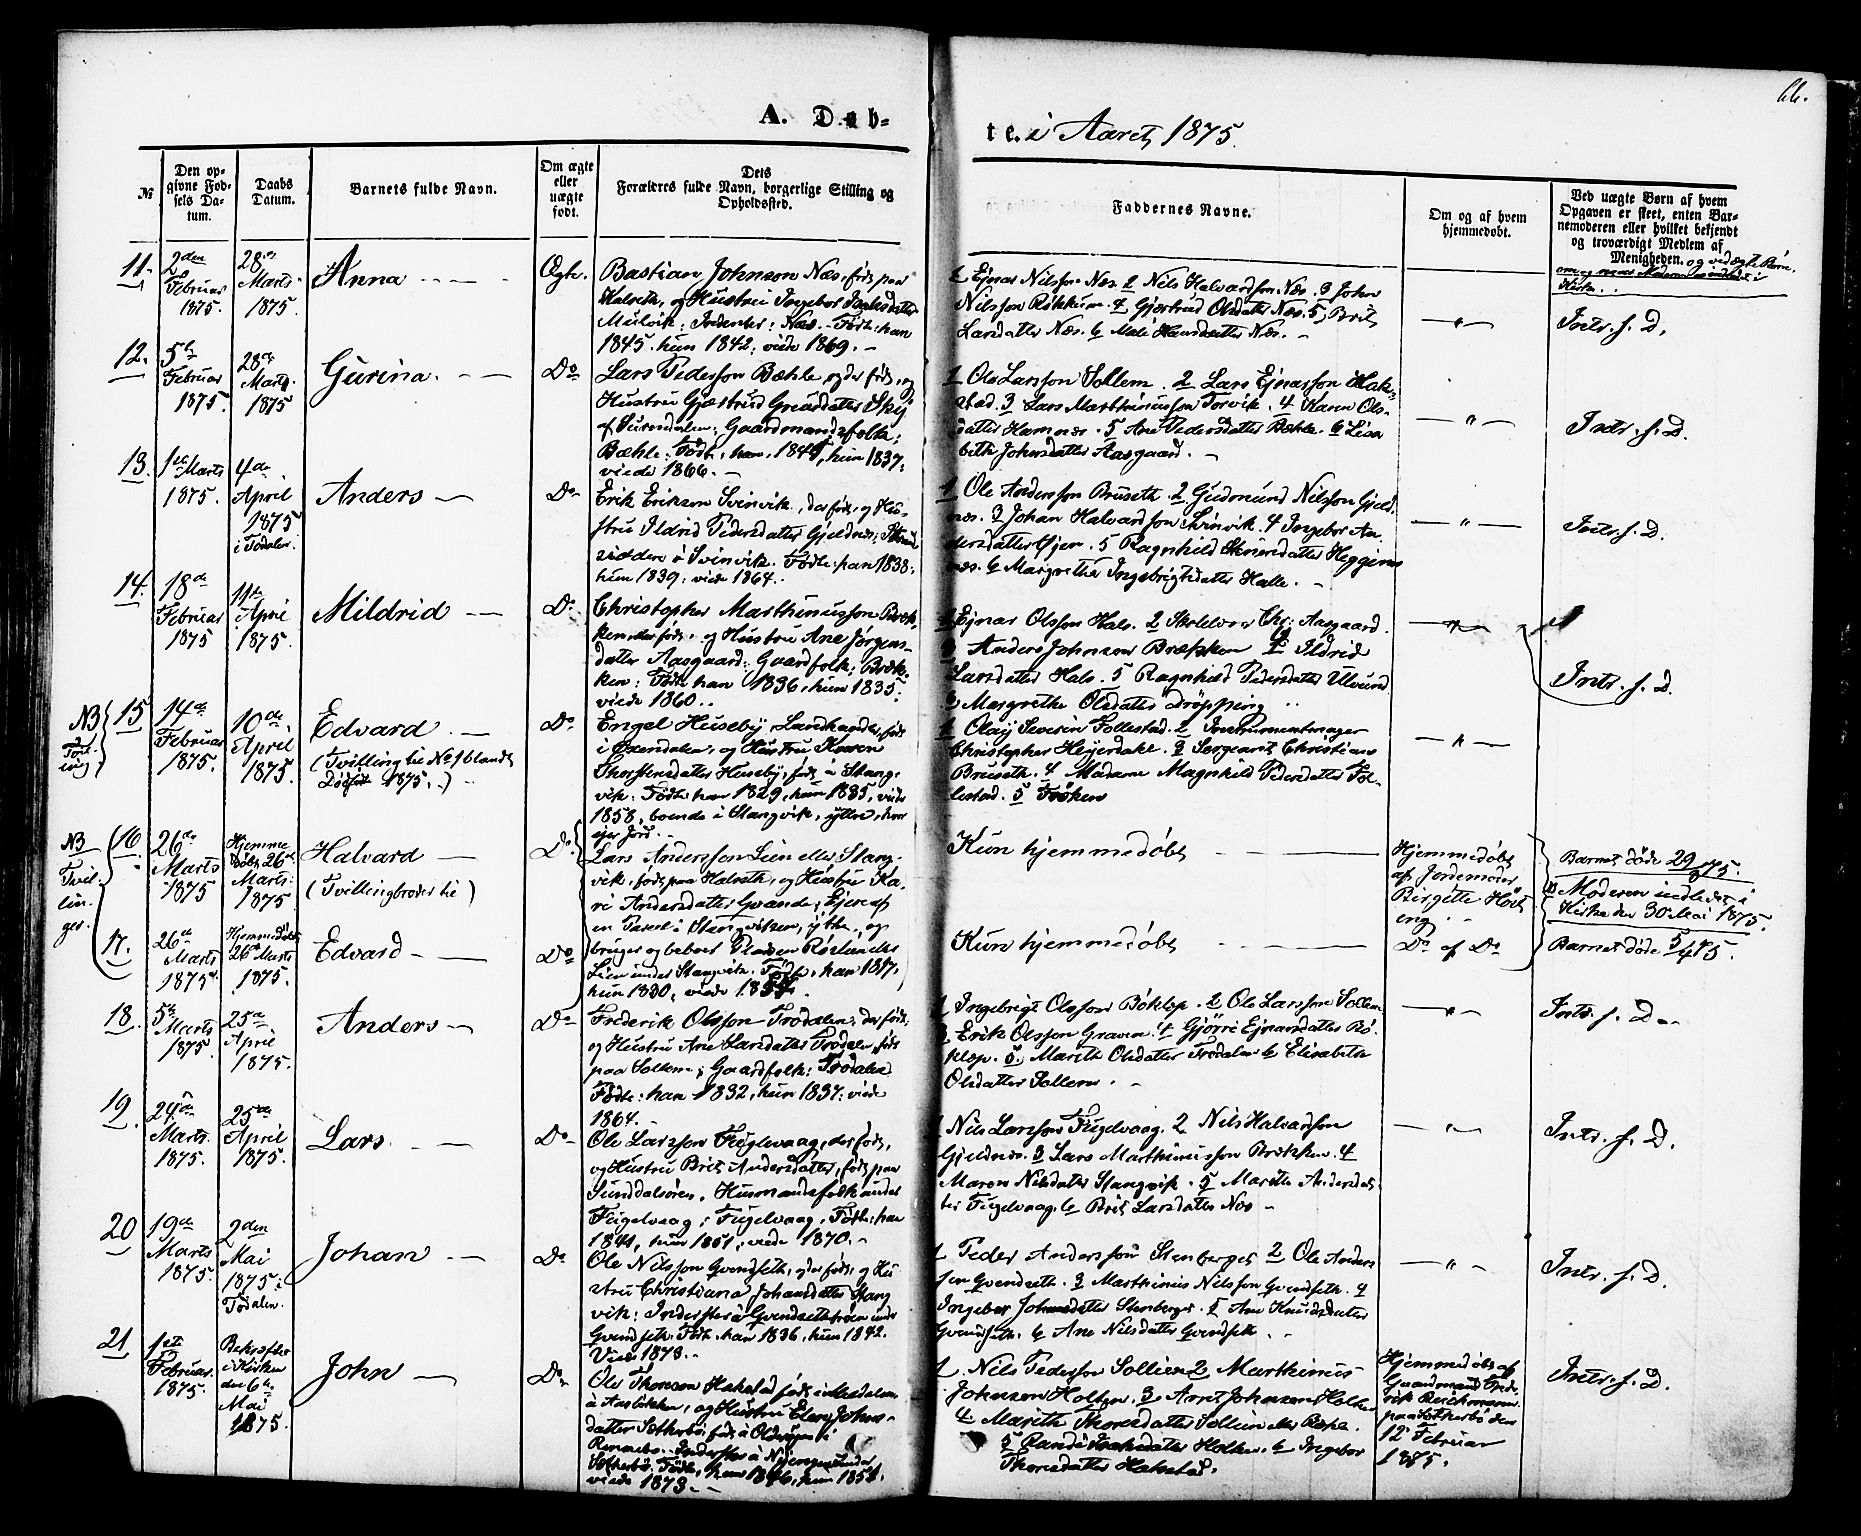 66.
A. Døb-
te. i Aaret 1875.
№
Den op-
givne Fød-
sels Da-
tum.
Daabs
Datum.
Barnets fulde Navn.
Om ægte
eller
uægte
født.
Forældres fulde Navn, borgerlige Stilling og
Opholdssted.
Faddernes Navne.
Om og af hvem
hjemmedøbt.
Ved uægte Børn af hvem
Opgaven er skeet, enten Bar-
nemoderen eller hvilket bekjendt
og troværdigt Medlem af
Menigheden. og ved ægte Børn
11.
2den
Februar
1875.
28de
Marts
1875.
Anna
Ægte.
Bastian Johnson Næs, født paa
Halseth, og Hustru Ingebor
Mulvik: Inderster: Næs. Fødte: han
1845. hun 1842; viede 1869.
1 Ejnar Nilsson Næs. 2 Nils Halvardson Næs. 3 John
Nilsson Røkkum. 4 Gjertrud Olsdatter Næs. 5 Brit
Larsdatter Næs. 6 Mali Hansdatter Næs.
— " —
Intr. f. D.
12.
5te
Februar
1875.
28de
Marts
1875
Gurina.
Do
Lars Pederson Bæhle, der født, og
Hustru Gjertrud
af Surendalen; Gaardmandsfolk;
Bæhle: Fødte: han 1845, hun 1837;
viede 1866.
1 Ole Larsson Sollem. 2 Lars Ejnarsson Hak-
stad. 3 Lars Marthinusson Torvik. 4 Karen Ols-
datter Hamnes. 5 Ane Pedersdatter Bæhle. 6 Lisa-
beth Johnsdatter Aasgaard.
— " —
Intr. f. D.
13.
1ste Marts
1875.
4de
April
1875
i Todalen.
Anders
Do
Erik Erikson Svinvik, der født, og Hu-
stru Ildrid Pedersdatter Gjeldnes;
i Svinvik. Fødte: han 1838;
hun 1839; viede 1864.
1 Ole Andersson Bruseth. 2 Gudmund Nilsson Gjeld-
næs. 3 Johan Halvardson Svinvik. 4 Ingebor An-
dersdatter Øjen. 5 Ragnhild
næs. 6 Margrethe Ingebrigtsdatter Halle.
— " —
Intr. f. D.
14.
18de
Februar
1875
11te
April
1875.
Mildrid
Do
Christopher Marthinusson Bræk-
ken, der født, og Hustru Ane Jørgens-
datter Aasgaard: Gaardfolk; Bræk-
ken: Fødte han 1836, hun 1835;
viede 1860.
1 Ejnar Olsson Hals. 2 Skolelærer Chr. Aasgaard.
3 Anders Johnson Brækken 4 Ildrid
Larsdatter Hals. 5 Ragnhild Pedersdatter Ulvund
6 Margrethe Olsdatter Drøpping
— " —
Intr. f. D.
NB
15
14de
Februar
1875.
10de
April
1875.
Edvard.
(Tvilling til No 1 blandt
Dødfødte 1875.)
Do
Engel Huseby, Landhandler, født
i Øxendalen, og Hustru Karen
Thorstensdatter Huseby, født i Stang-
vik: Fødte: han 1829, hun 1835, viede
1858, boende i Stangvik, yttre, hvor
ejer Jord.
1 Olaj Severin Follestad. 2 Instrumentmager
Christopher Heyerdahl. 3 Sergeant Christian
Bruseth. 4 Madame Magnhild Pedersdatter Fol-
lestad. 5 Frøken
— " —
NB
Tvil-
lin-
ger.
16.
26de
Marts
1875
Hjemme
døbt 26de
Marts
1875.
Halvard
(Tvillingbroder til)
Do
Lars Andersson Lien eller Stang-
vik, født paa Halseth, og Hustru Ka-
ri Andersdatter Qvande; Ejer af
en Parcel i Stangvikson, yttre, og
bruger og beboer Pladsen
Lien under Stangvik. Fødte, han 1817,
hun 1830, viede 1854.
Kun hjemmedøbt
Hjemmedøbt
af Jordemoder
Birgitte
eng.
Barnet døde 29/3 75.
Moderen indledet i
Kirke den 30 Mai 1875.
17.
26de
Marts
1875.
Hjemmedøbt
26de Marts
1875.
Edvard
Do
Kun hjemmedøbt
Do af Do
Barnet døde 5/4 75.
18.
5te
Marts
1875.
25de
April
1875.
Anders
Do
Frederik Olsson Trødalen; der født;
og Hustru Ane Larsdatter Trødalen, født
paa Sollem; Gaardfolk: Trødalen
Fødte: han 1832, hun 1837: viede
1864.
1 Ingebrigt Olsson Bøklep. 2 Ole Larsson Sollem
3 Erik Olsson Graven. 4 Gjørri Ejnarsdatter Bø-
klep. 5. Marith Olsdatter Trødalen 6 Elisabeth
Olsdatter Sollem.
— " —
Intr. f. D.
19.
24de
Marts.
1875.
25de
April
1875.
Lars.
Do
Ole Larsson Fuglevaag, der født,
og Hustru Brit Andersdatter, født paa
Sunddalsøren. Husmandsfolk under
Fuglevaag; Fuglevaag. Fødte: han
1841, hun 1851; viede 1870.
1 Nils Larsson Fuglevaag. 2 Nils Halvardson
Gjeldnæs. 3 Lars Marthinusson Brækken. 4
Maren Nilsdatter Stangvik. 5 Marith Andersdat-
ter Fuglevaag. 6 Brit Larsdatter Næs
— " —
Intr. f. D.
20
19de
Marts
1875.
2den
Mai
1875:
Todalen.
Johan
Do
Ole Nilsson Qvendseth, der født, og Hu-
stru Christiana Johansdatter Stang-
vik: Inderster i
Qvendseth. Fødte: han 1836, hun 1842.
Viede 1873.
1 Peder Andersson Stenberget 2 Ole Anders-
sen Qvendseth. 3 Marthinus Nilsson Qvendseth. 4
Ingebor Johnsdatter Stenberget. 5 Ane Knudsdatter
Qvendseth. 6 Ane Nilsdatter Qvendseth.
— " —
Intr. f. D.
21
1ste
Februar
1875.
Bekræftet
i Kirken
den 6te
Mai
1875.
John
Do
Ole Thoreson Hakstad født i
og Hustru Elen Johns-
datter Sætherbø, født
Rennebo. Inderster i
Sætherbø. Fødte, han 1846, hun 1851.
viede 1873.
1 Nils Pederson Sollien 2 Marthinus
Johnson Holten. 3 Arnt Johnson Holten
4 Marith Thoresdatter Sollien
5 Randi Holten. 6 Ingebor
Thoresdatter Hakstad.
Hjemmedøbt af
Gaardmand Frede-
rik Reichmann
paa Sætherbø den
12 Februar
1875.
Intr. f. D.